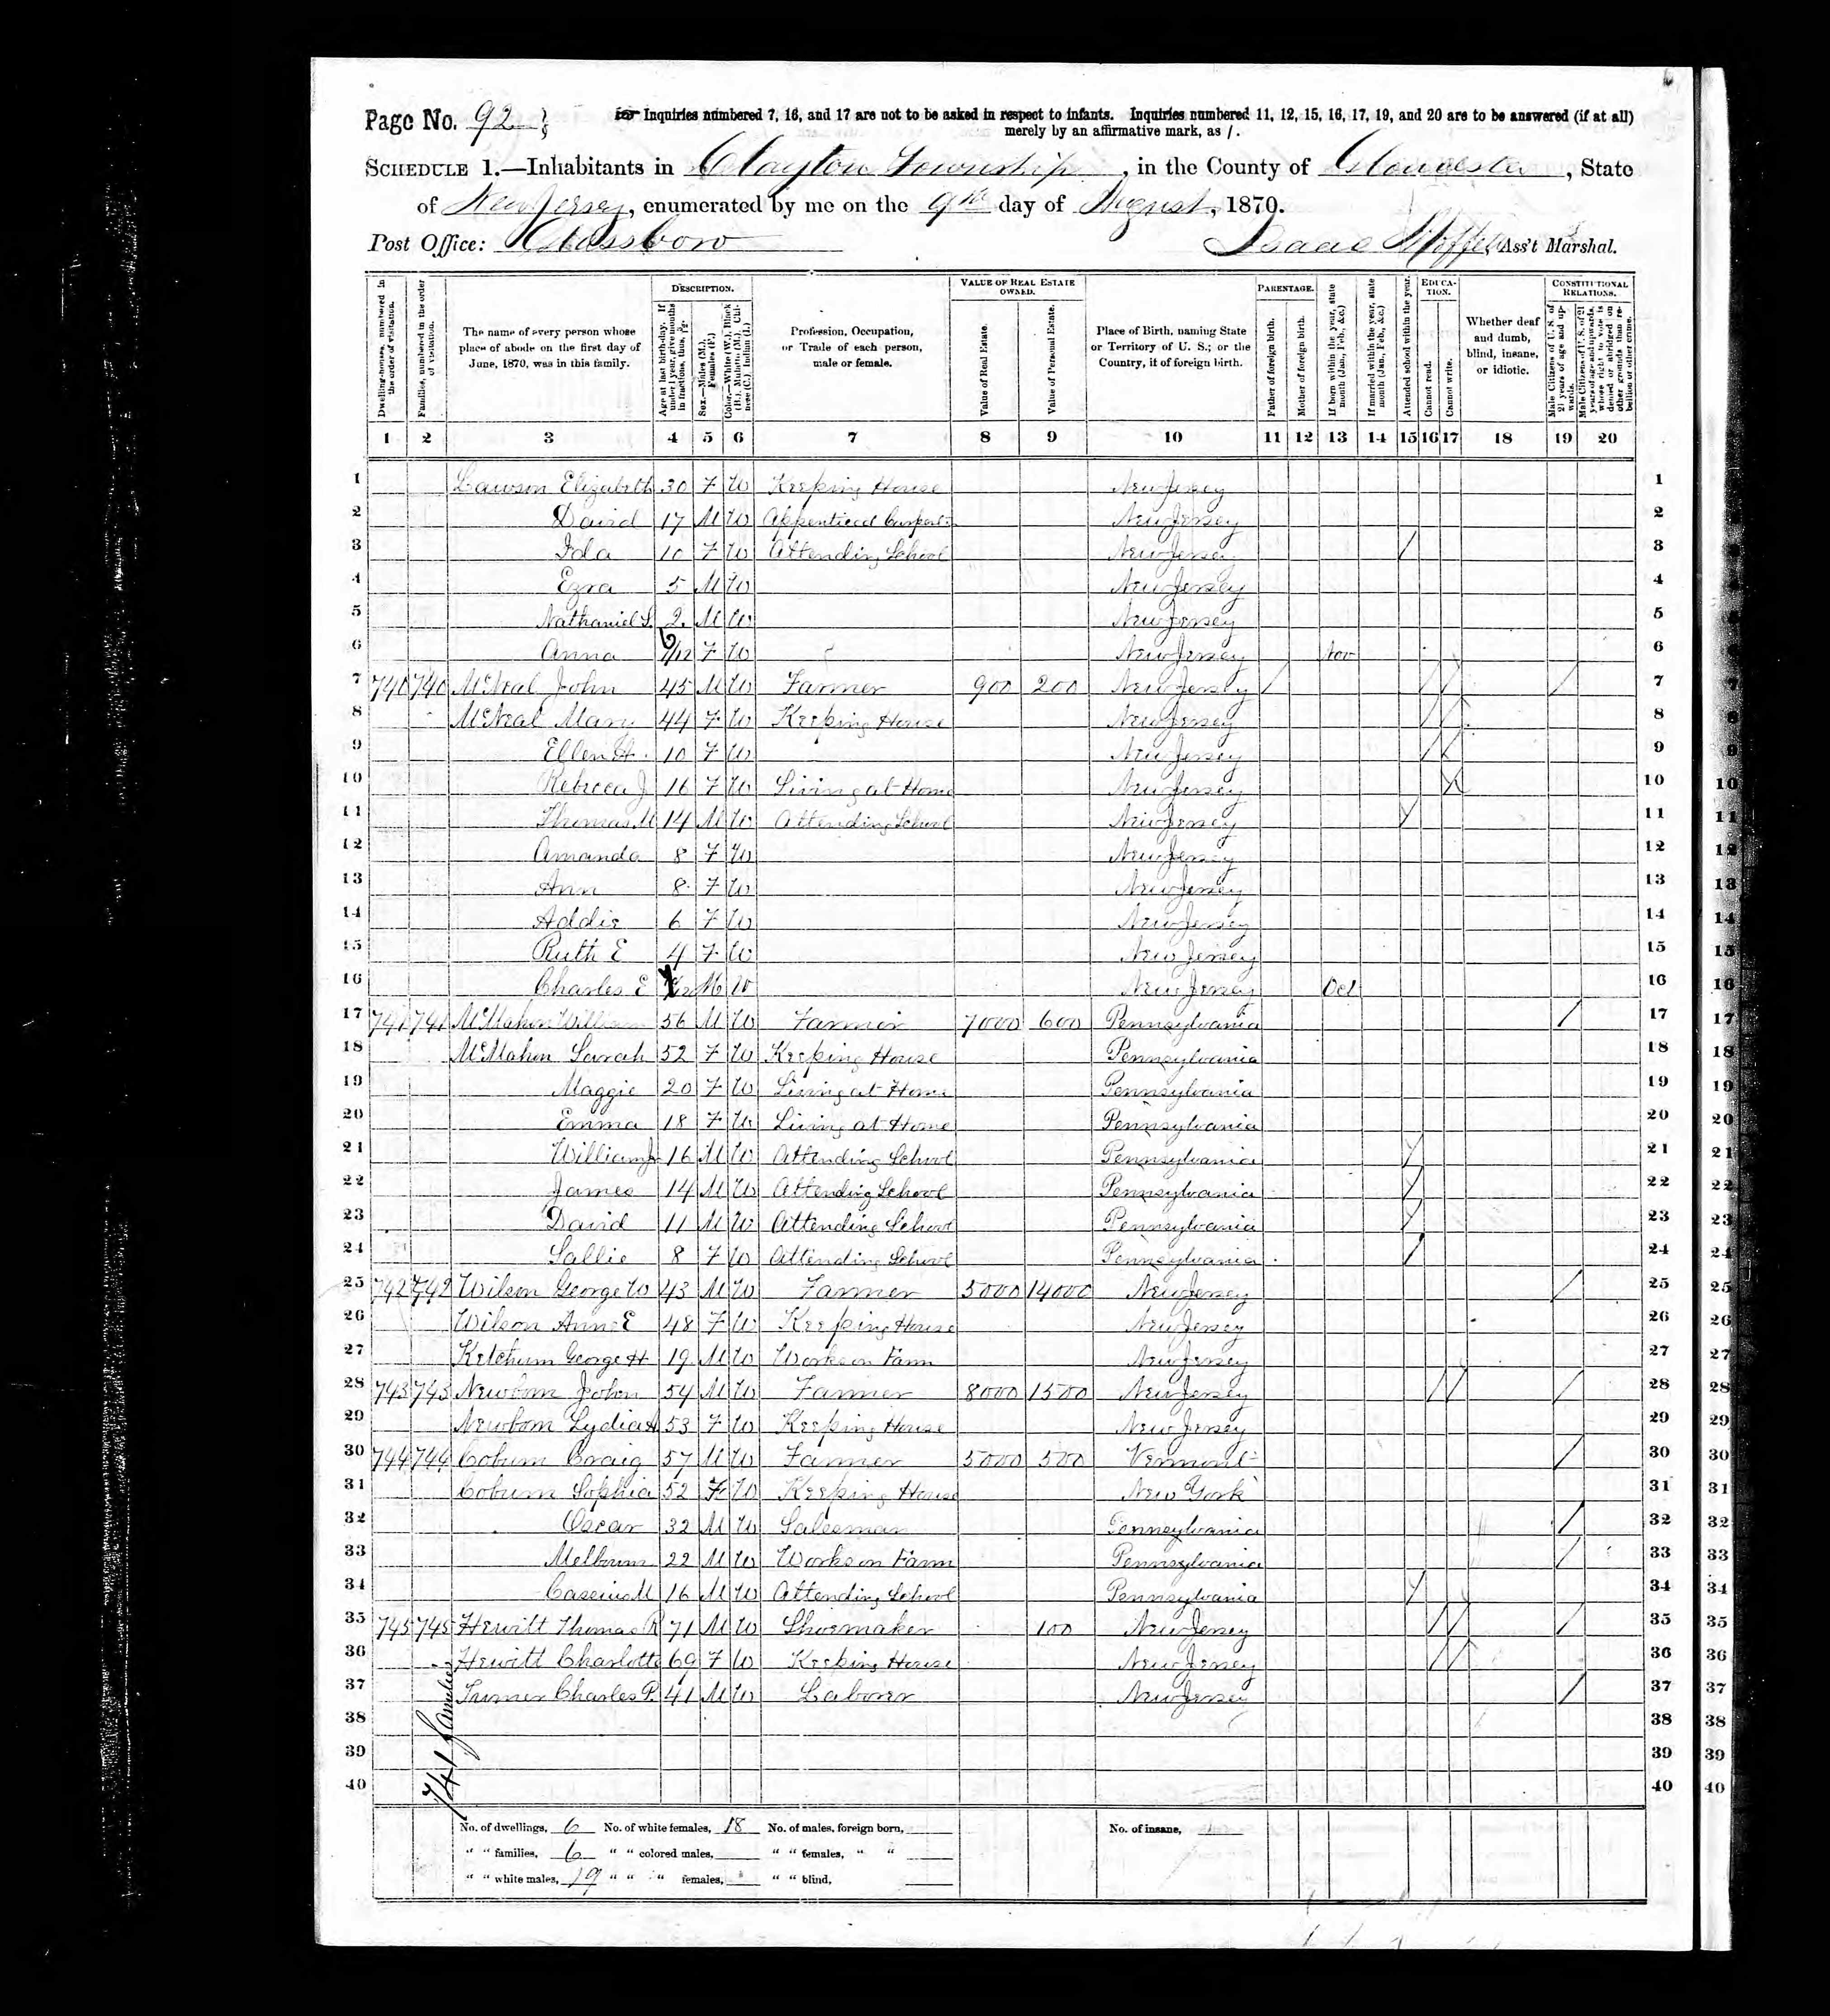 Page No. 92
Inquiries numbered 7, 16, and 17 are not to be asked in respect to infants. Inquiries numbered 11, 12, 15, 16, 17, 19, and 20 are to be answered (if at all)
merely by an affirmative mark, as /.
SCHEDULE 1.—Inhabitants in Clayton Township, in the County of Gloucester, State
of New Jersey, enumerated by me on the 9th day of August, 1870.
Post Office: Glassboro Isaac Ass't Marshal.
Dwelling-houses, numbered in the order of visitation.
Families, numbered in the order of visitation.
The name of every person whose place of abode on the first day of June, 1870, was in this family.
DESCRIPTION.
Age at last birth-day. If under 1 year, give months in fractions, thus, 3/12.
Sex.—Males (M.), Females (F.)
Color.—White (W.), Black (B.), Mulatto (M.), Chinese (C.), Indian (I.)
Profession, Occupation, or Trade of each person, male or female.
VALUE OF REAL ESTATE OWNED.
Value of Real Estate.
Value of Personal Estate.
Place of Birth, naming State or Territory of U. S.; or the Country, if of foreign birth.
PARENTAGE.
Father of foreign birth.
Mother of foreign birth.
If born within the year, state month (Jan., Feb., &c.)
If married within the year, state month (Jan., Feb., &c.)
Attended school within the year.
EDUCATION.
Cannot read.
Cannot write.
Whether deaf and dumb, blind, insane, or idiotic.
CONSTITUTIONAL RELATIONS.
Male Citizens of U. S. of 21 years of age and upwards.
Male Citizens of U. S. of 21 years of age and upwards, whose right to vote is denied or abridged on other grounds than rebellion or other crime.
1 2 3 4 5 6 7 8 9 10 11 12 13 14 15 16 17 18 19 20
1 Lawson Elizabeth 30 F W Keeping House New Jersey 1
2 David 17 M W Appenticed New Jersey 2
3 Ida 10 F W Attending School New Jersey / 3
4 Ezra 5 M W New Jersey 4
5 Nathaniel S. 2 M W New Jersey 5
6 Anna /12 F W New Jersey Nov 6
7 740 740 McNeal John 45 M W Farmer 900 200 New Jersey / / / / 7
8 McNeal Mary 44 F W Keeping House New Jersey / / 8
9 Ellen A. 10 F W New Jersey / / 9
10 Rebecca J 16 F W Living at Home New Jersey 10
11 Thomas M 14 M W Attending School New Jersey / 11
12 Amanda 8 F W New Jersey 12
13 Ann 8 F W New Jersey 13
14 Addie 6 F W New Jersey 14
15 Ruth E 4 F W New Jersey 15
16 Charles E M W New Jersey Oct 16
17 741 741 McMahon William 56 M W Farmer 7000 600 Pennsylvania / 17
18 McMahon Sarah 52 F W Keeping House Pennsylvania 18
19 Maggie 20 F W Living at Home Pennsylvania 19
20 Emma 18 F W Living at Home Pennsylvania 20
21 William Jr 16 M W Attending School Pennsylvania / 21
22 James 14 M W Attending School Pennsylvania / 22
23 David 11 M W Attending School Pennsylvania / 23
24 Sallie 8 F W Attending School Pennsylvania / 24
25 742 742 Wilson George W 43 M W Farmer 5000 14000 New Jersey / 25
26 Wilson Ann E 48 F W Keeping House New Jersey 26
27 Ketchum George H 19 M W Works on Farm New Jersey 27
28 743 743 Newborn John 54 M W Farmer 8000 1500 New Jersey / / / 28
29 Newborn Lydia A 53 F W Keeping House New Jersey 29
30 744 744 Coburn Craig 57 M W Farmer 5000 500 Vermont / 30
31 Coburn Sophia 52 F W Keeping House New York 31
32 Oscar 32 M W Salesman Pennsylvania / 32
33 Melbourn 22 M W Works on Farm Pennsylvania / 33
34 Cassius M 16 M W Attending School Pennsylvania / 34
35 745 745 Hewitt Thomas R 71 M W Shoemaker 100 New Jersey / / / 35
36 Hewitt Charlotte 69 F W Keeping House New Jersey / / 36
37 Turner Charles P. 41 M W Laborer New Jersey / 37
38 38
39 39
40 40
741 Families
No. of dwellings, 6 No. of white females, 18 No. of males, foreign born, No. of insane,
" " families, 6 " " colored males, " " females, " "
" " white males, 19 " " " females, " " blind,